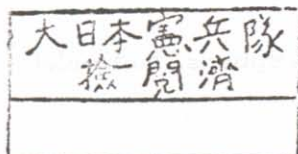 大日本憲兵隊
撿閲濟